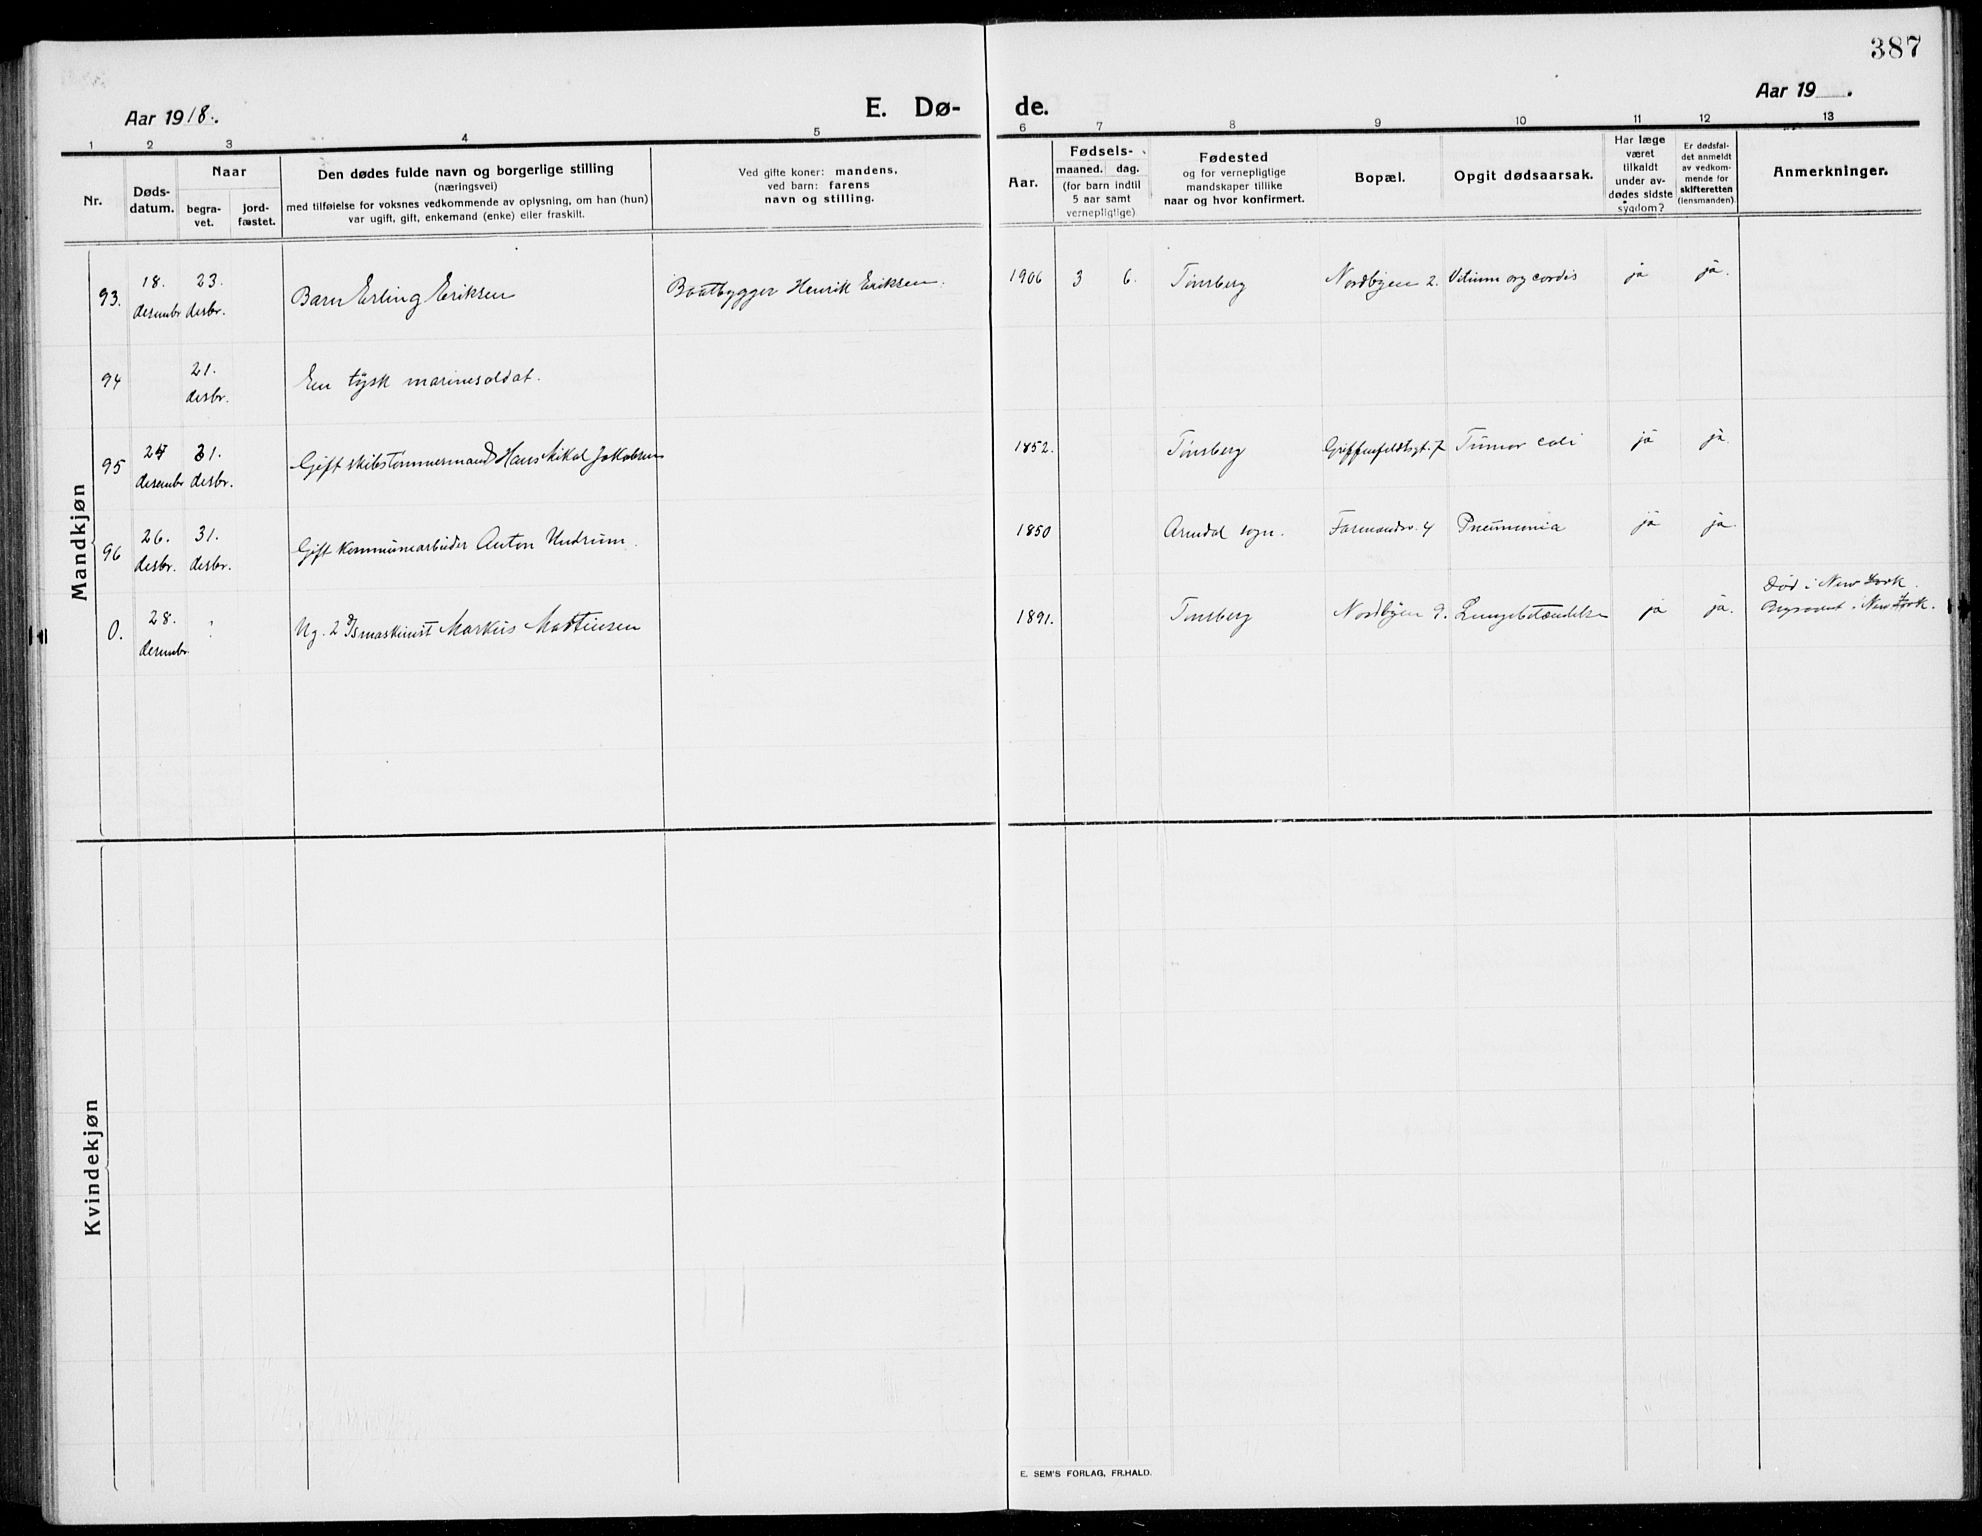 387
Aar 1918.
E. Dø-
de.
Aar 19 .
1 2 3 4 5 6 7 8 9 10 11 12 13
Nr.
Døds-
datum.
Naar
begra-
vet.
jord-
fæstet.
Den dødes fulde navn og borgerlige stilling
(næringsvei)
med tilføielse for voksnes vedkommende av oplysning, om han (hun)
var ugift, gift, enkemand (enke) eller fraskilt.
Ved gifte koner: mandens,
ved barn: farens
navn og stilling.
Aar.
Fødsels-
maaned. dag.
(for barn indtil
5 aar samt
vernepligtige)
Fødested
og for vernepligtige
mandskaper tillike
naar og hvor konfirmert.
Bopæl.
Opgit dødsaarsak.
Har læge
været
tilkaldt
under av-
dødes sidste
sygdom?
Er dødsfal-
det anmeldt
av vedkom-
mende for
skifteretten
(lensmanden).
Anmerkninger.
Mandkjøn
93. 18. desembr 23. desbr. Barn Erling Eriksen Baatbygger Henrik Eriksen. 1906 3 6. Tønsberg Nordbyen 2. Vitium org cordis ja ja.
94 21. desbr. En tysk marinesoldat.
95 desembr 31. desbr. Gift skibstømmermand Hans Nikol Jakobsen 1852. Tønsberg Griffenfeldtsgt. 7 Tumor coli ja ja.
96 26. desbr. 31. desbr. Gift kommunearbeider Anton Undrum. 1850 Arendal sogn. Farmandsv. 4 Pneumonia ja ja.
0. 28. desembr. ? Ug. 2 maskinist Markus Mathiesen 1891. Tønsberg Nordbyen 9. Lungebetændelse ja ja. Død i New York.
i New York.
Kvindekjøn
E. SEM'S FORLAG, FR.HALD.